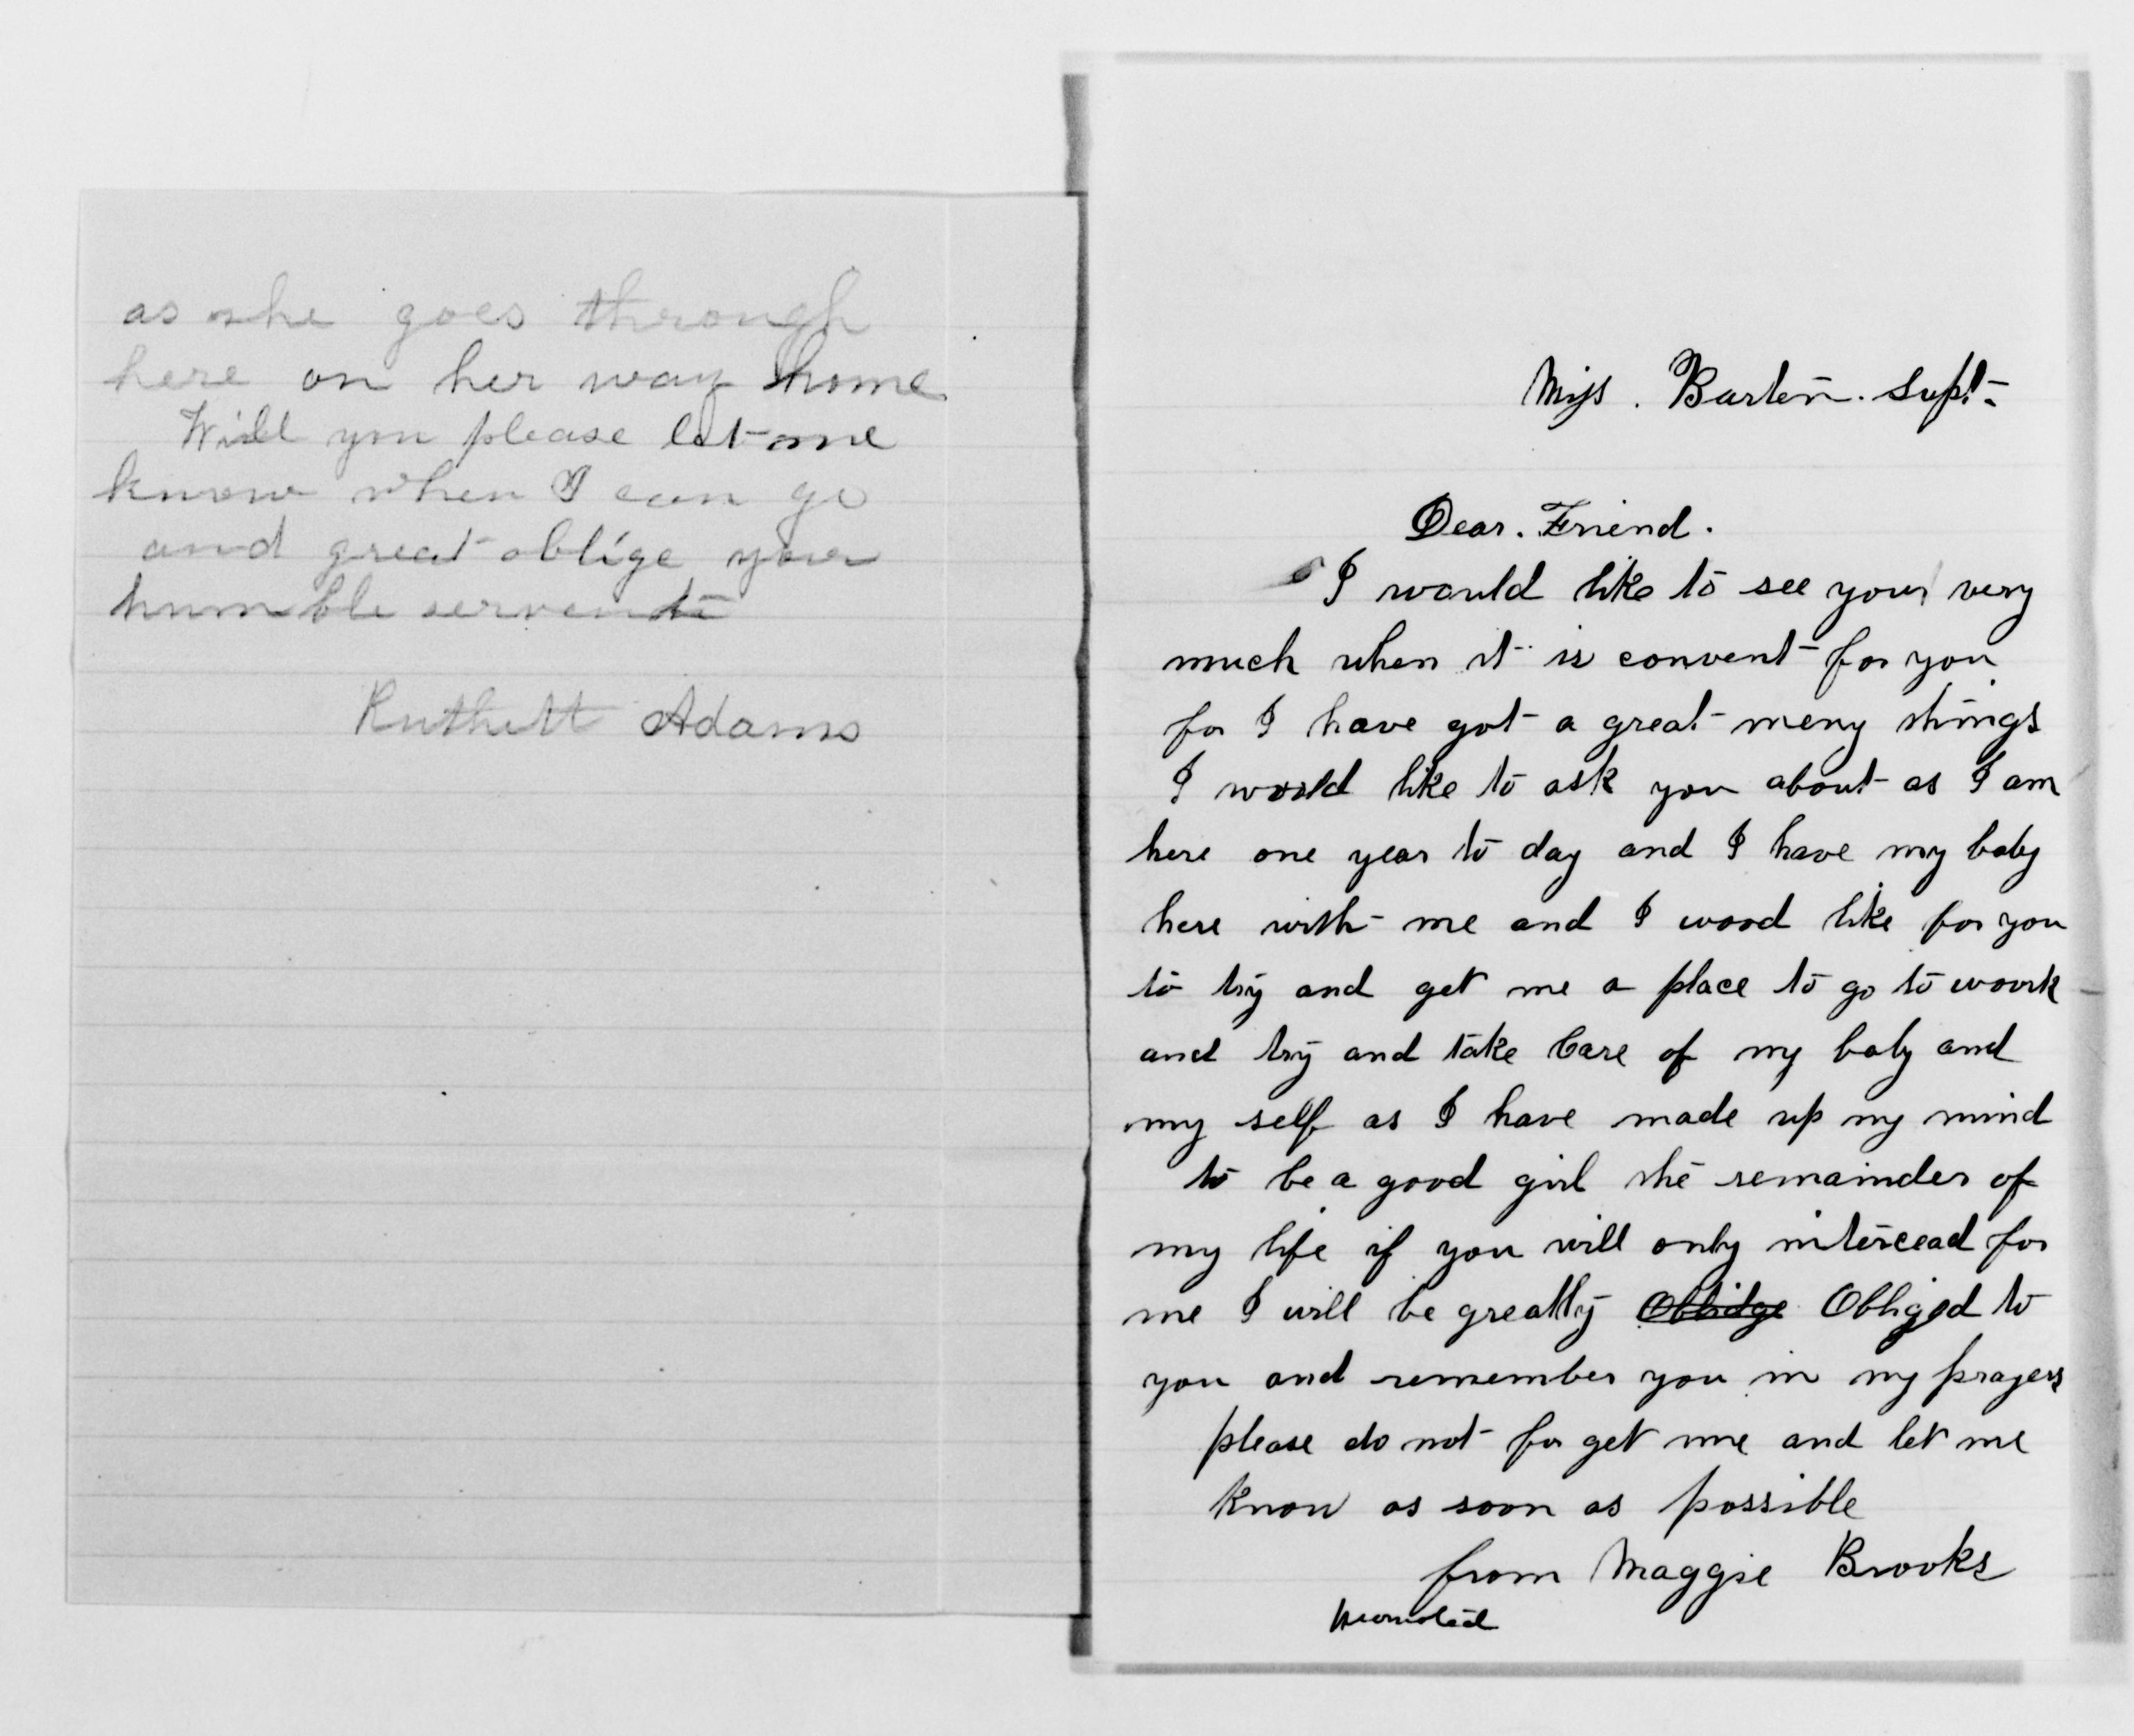 as she goes through
here on her way home
Will you please let me
know when I can go
and great oblige your
humble servent
Ruthett Adams
Miss. Barton. Supt.
Dear. Friend.
I would like to see your very
much when it is convent for you
for I have got a great meny things
I woold like to ask you about as I am
here one year to day and I have my baby
here with me and I wood like for you
to try and get me a place to go to woork
and try and take Care of my baby and
my self as I have made up my mind
to be a good girl the remainder of
my life if you will only intercead for
me I will be greatly Oblidge Obliged to
you and remember you in my prayers
please do not for get me and let me
Know as soon as possible
from Maggie Brooks